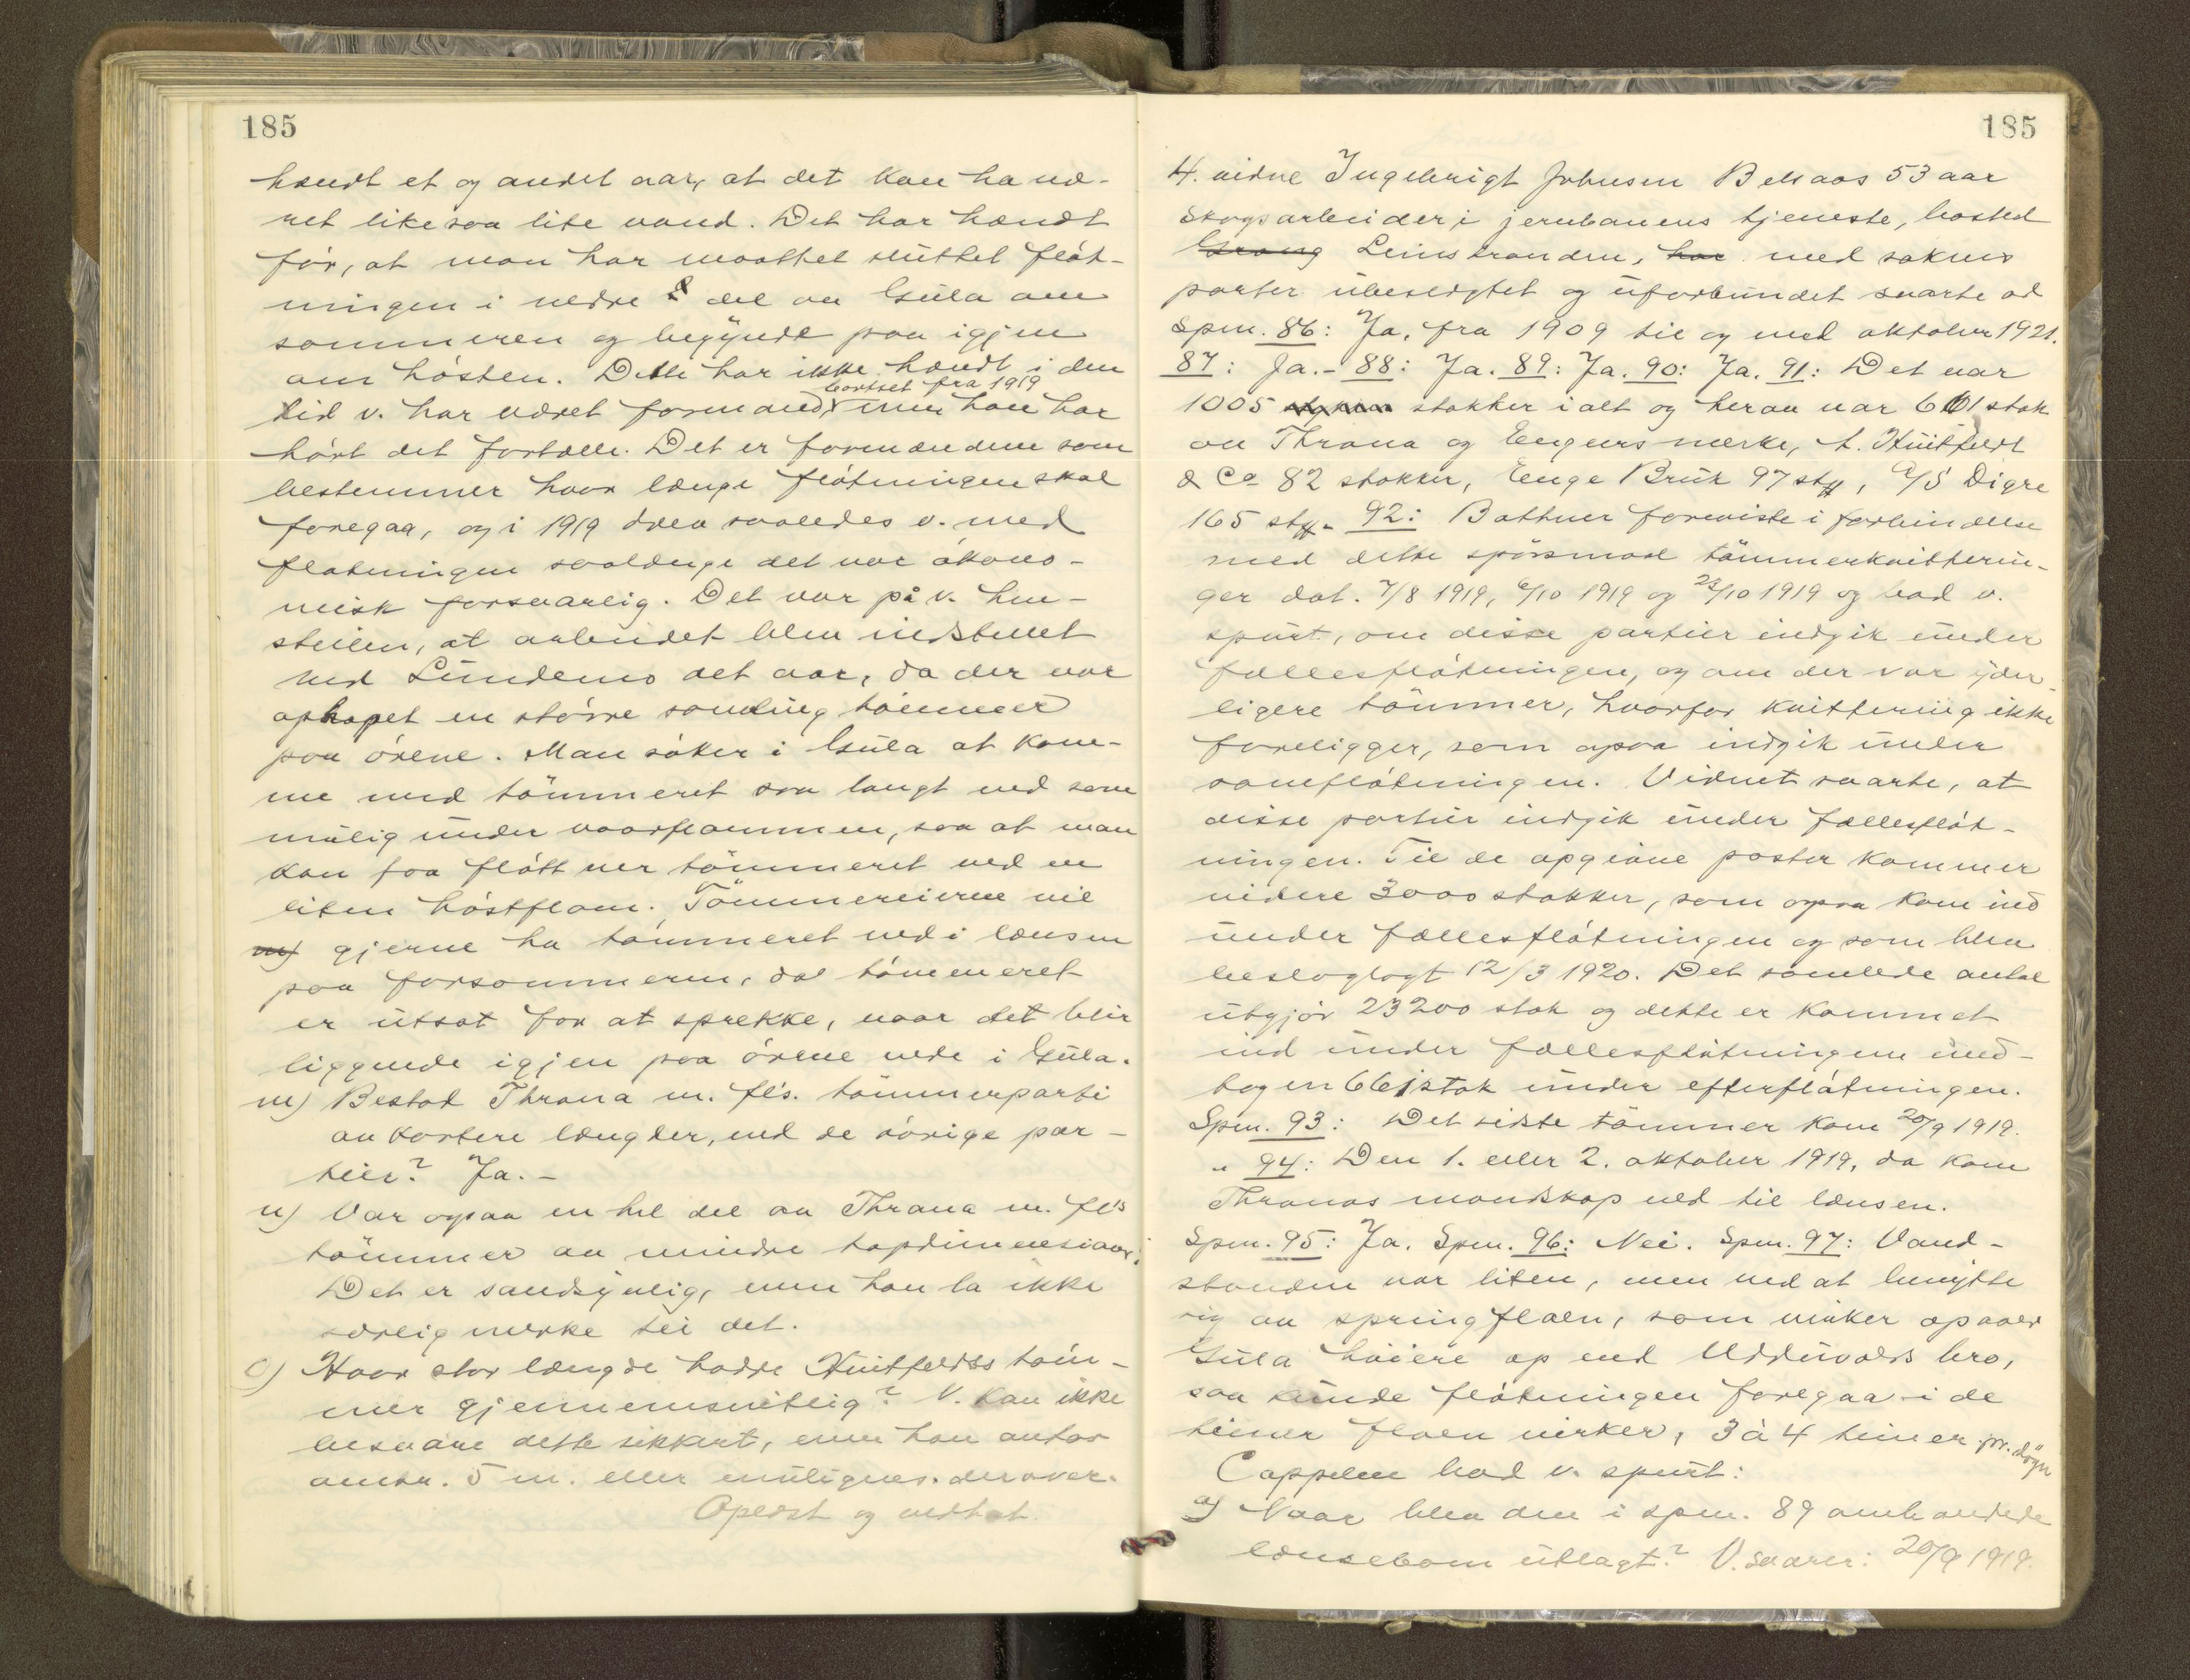 185
hændt et og andet aar, at det kan ha væ-
ret like saa lite vand. Det har hændt
för, at man har maattet sluttet flöt-
ningen i nedre del av Gula om
sommeren og begyndt paa igjen
om hösten. Dette har ikke hændt i den
bortset fra 1919
tid v. har været formand, men han har
hört det fortælle. Det er formændene som
bestemmer hvor længe flötningen skal
foregaa, og i 1919 drev saaledes v. med
flötningen saalænge det var ökono-
misk forsvarlig. Det var på v. hen-
stillen, at arbeidet blev indstillet
ved Lundemo det aar, da der var
ophopet en större samling tömmer
paa örene. Man söker i Gula at kom-
me med tömmeret saa langt ned som
mulig under vaarflommen, saa at man
kan faa flött ner tömmeret ved en
liten höstflom. Tömmereierne vil
m) gjerne ha tömmeret ned i lænsen
paa forsommeren, da tömmeret
er utsat for at sprekke, naar det blir
liggende igjen paa örene nede i Gula.
m) Bestod Thrana m. fl's. tömmerparti
av kortere længder, end de övrige par-
tier? Ja.-
n) Var ogsaa en hel del av Thrana m. fl's
tömmer av mindre topdimensioner?
Det er sandsynlig, men han la ikke
særlig merke til det.
o) Hvor stor længde hadde Huitfeldts töm-
mer gjennemsnitlig? V. kan ikke
besvare dette sikkert, men han antar
omtr. 5 m. eller muligens derover.
Oplæst og vedtat.
185
4. vidne Ingebrigt Johnsen Belsaas 53 aar
skogsarbeider i jernbanens tjeneste, bosted
Grong Leinstranden, har med sakens
parter ubeslegtet og uforbundet svarte ad
Spm. 86: Ja, fra 1909 til og med oktober 1921.
87: Ja.- 88: Ja. 89: Ja. 90: Ja. 91: Det var
1005 stokker i alt og herav var 661 stok
av Thrana og Engens merke, H. Huitfeldt
& Co 82 stokker, Enge Bruk 97 stk, A/S Digre
165 stk. 92: Bathner foreviste i forbindelse
med dette spörsmaal tömmerkvitterin-
ger dat. 7/8 1919, 6/10 1919 og 28/10 1919 og bad v.
spurt, om disse partier indgik under
fællesflötningen, og om der var yder-
ligere tömmer, hvorfor kvittering ikke
foreligger, som ogsaa indgik under
samflötningen. Vidnet svarte, at
disse partier indgik under fællesflöt-
ningen. Til de opgivne poster kommer
videre 3000 stokker, som ogsaa kom ind
under fællesflötningen og som blev
beslaglagt 12/3 1920. Det samlede antal
utgjör 23200 stok og dette er kommet
ind under fællesflötningen und-
tagen 661 stok under efterflötningen.
Spm. 93: Det sidste tömmer kom 20/9 1919.
" 94: Den 1. eller 2. oktober 1919, da kom
Thranas mandskap ned til lænsen.
Spm. 95: Ja. Spm. 96: Nei. Spm. 97: Vand-
standen var liten, men ved at benytte
sig av springfloen, som virker opover
Gula höiere op end Udduvolds bro,
saa kunde flötningen foregaa i de
timer floen virker, 3 à 4 timer pr. dögn
Cappelen bad v. spurt:
a) Naar blev den i spm. 89 omhandlede
lænsebom utlagt? V. svarer: 20/9 1919.